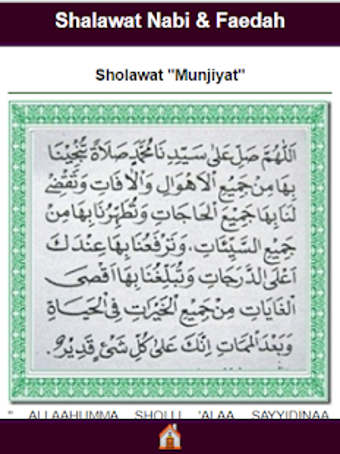 Shalawat Nabi & Faedah
Sholawat "Munjiyat"
اَللّٰهُمَّ صَلِّ عَلٰى سَيِّدِنَا مُحَمَّدٍ صَلَاةً تُنْجِيْنَا
بِهَا مِنْ جَمِيْعِ الْاَهْوَالِ وَالْاٰفَاتِ وَتَقْضِيْ
لَنَا بِهَا جَمِيْعَ الْحَاجَاتِ وَتُطَهِّرُنَا بِهَا مِنْ
جَمِيْعِ السَّيِّئَاتِ، وَتَرْفَعُنَا بِهَا عِنْدَكَ
اَعْلَى الدَّرَجَاتِ وَتُبَلِّغُنَا بِهَا اَقْصَى
الْغَايَاتِ مِنْ جَمِيْعِ الْخَيْرَاتِ فِى الْحَيَاةِ
وَبَعْدَ الْمَمَاتِ اِنَّكَ عَلٰى كُلِّ شَيْءٍ قَدِيْرٌ.
" ALLAAHUMMA SHOLLI 'ALAA SAYYIDINAA